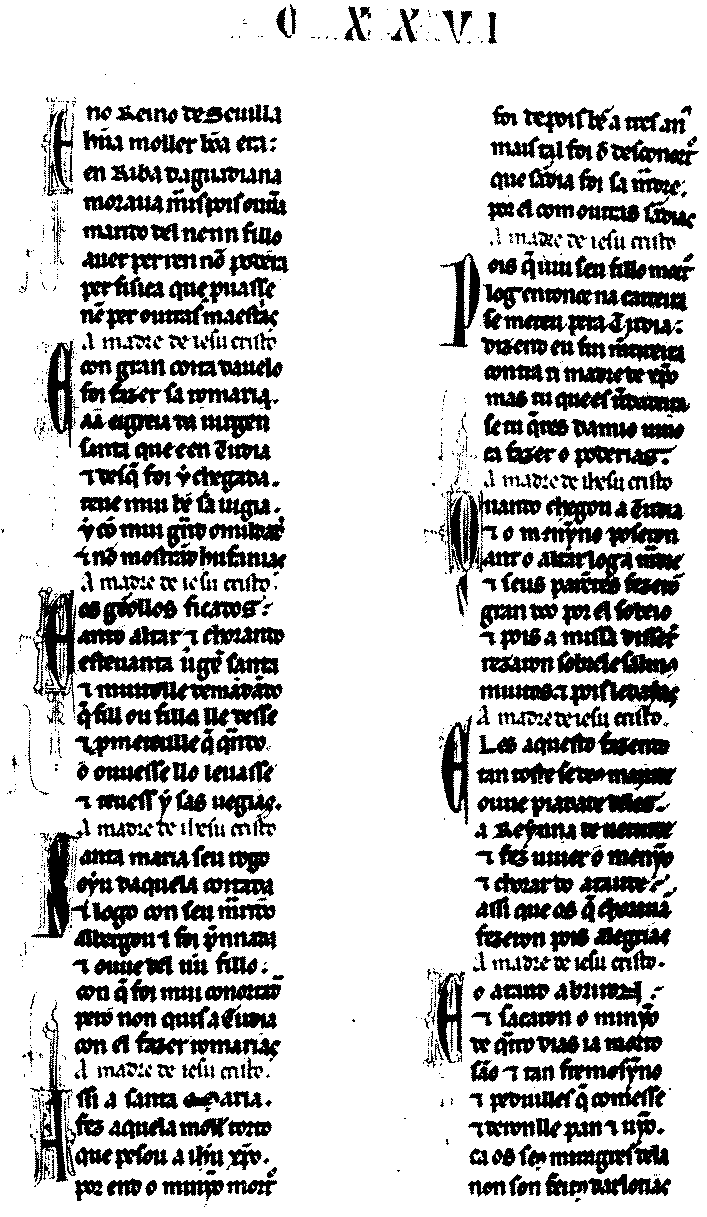 C XXVI
Eno Reino de Seuilla
hũa moller bõa era:
en Riba daguadiana
moraua
marido del nenn fillo
auer per ren nõ podera
per fisica que puasse
nẽ per outras maestias
A madre de iesu cristo
E con gran coita dauelo
foi fazer sa romaria.
Aa eigreia da uirgen
santa que e en Tudia
⁊ desq̃ foi ẏ chegada.
teue mui bẽ sa uigia.
ẏ cõ mui gñd omildade
⁊ nõ mostrãdo bufanias
A madre de iesu cristo.
E os gẽollos ficados:
anto altar ⁊ chorando
esteuanta uirgẽ santa
⁊ muitolle demãdãdo
q̃ fill ou filla lle desse
⁊ pmetendolle q̃ q̃ndo
o ouuesse llo leuasse
⁊ teuess ẏ sas uegias.
A madre de ihesu cristo
Santa maria seu rogo
oyu daquela coitada
⁊ logo con seu marido
albergou ⁊ foi prennada
⁊ ouue del un fillo:
con q̃ foi mui conortada
pero non quis a Tudia
con el fazer romarias
A madre de iesu cristo.
Assi a santa maria.
fez aquela moller torto
que pesou a ihũ xp̃o.
por end o minyo mort
foi depois bẽ a tres an
mais tal foi o desconort
que sãdia foi sa madre:
por el com outras sãdias
A madre de iesu cristo
Pois q̃ uiu seu fillo mort
log entonce na carreira
se meteu pera Tudia:
dizend eu fui mentireira
contra ti madre de xp̃o
mas tu que es uerdadeira
se tu q̃res damio uiuo
ca fazer o poderias:
A madre de ihesu cristo
Quando chegou a Tudia
⁊ o menyno poseron
anto altar log a madre
⁊ seus parẽtes fezerõ
gran doo por el sobeio
⁊ pois a missa disser
rezaron sobrele salmo
muitos: ⁊ pois ledanias
A madre de iesu cristo.
Eles aquesto fazendo
tan toste se deo mande
ouue piadade delos.
a Reynna de uerdade
⁊ fez uiuer o menyo
⁊ chorar do ataude:
assi que os q̃ chorauã
fezeron pois alegrias
A madre de iesu cristo.
E o ataud abriron:
⁊ sacaron o minyo
de q̃tro dias ia morto
são ⁊ tan fremosyno
⁊ pedulles q̃ comesse
⁊ deronlle pan ⁊ uyo.
ca os seus miragres dela
non son feitos darlotias